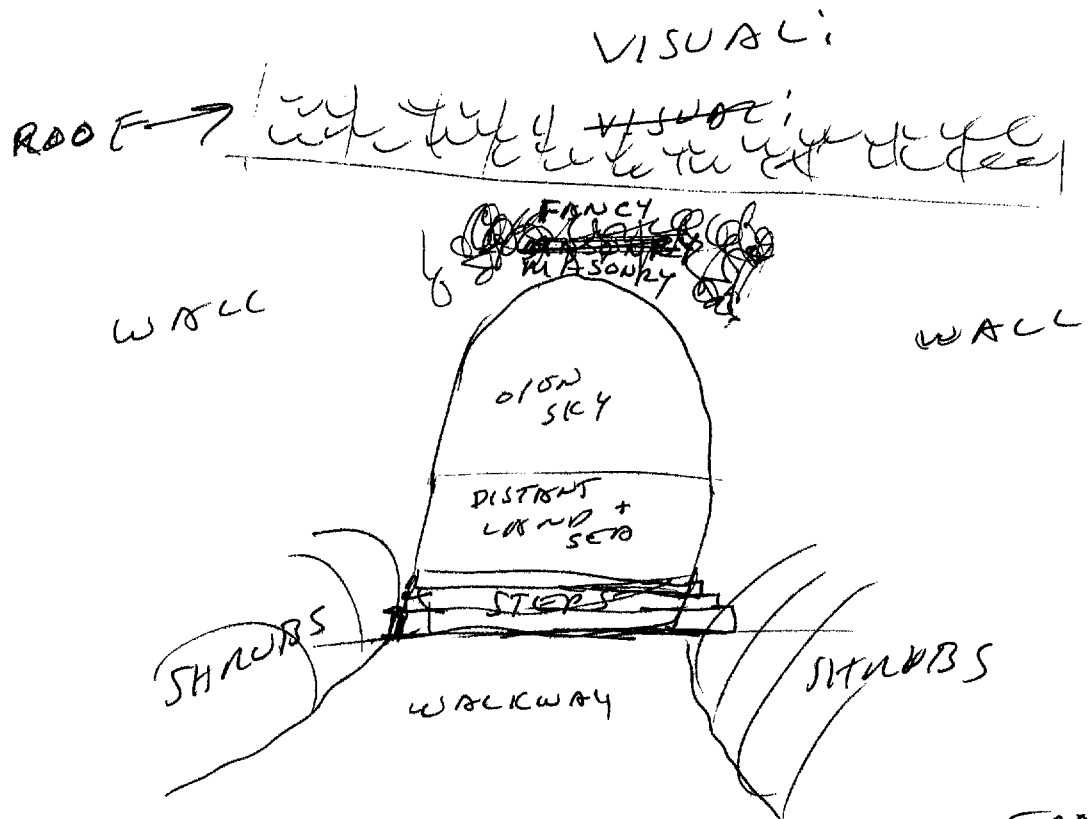 VISUAL:
ROOF
VISUAL:
FANCY
MASONRY
MASONRY
WALL
WALL
OPEN
SKY
DISTANT
LAND +
SEA
STEPS
SHRUBS
SHRUBS
WALKWAY